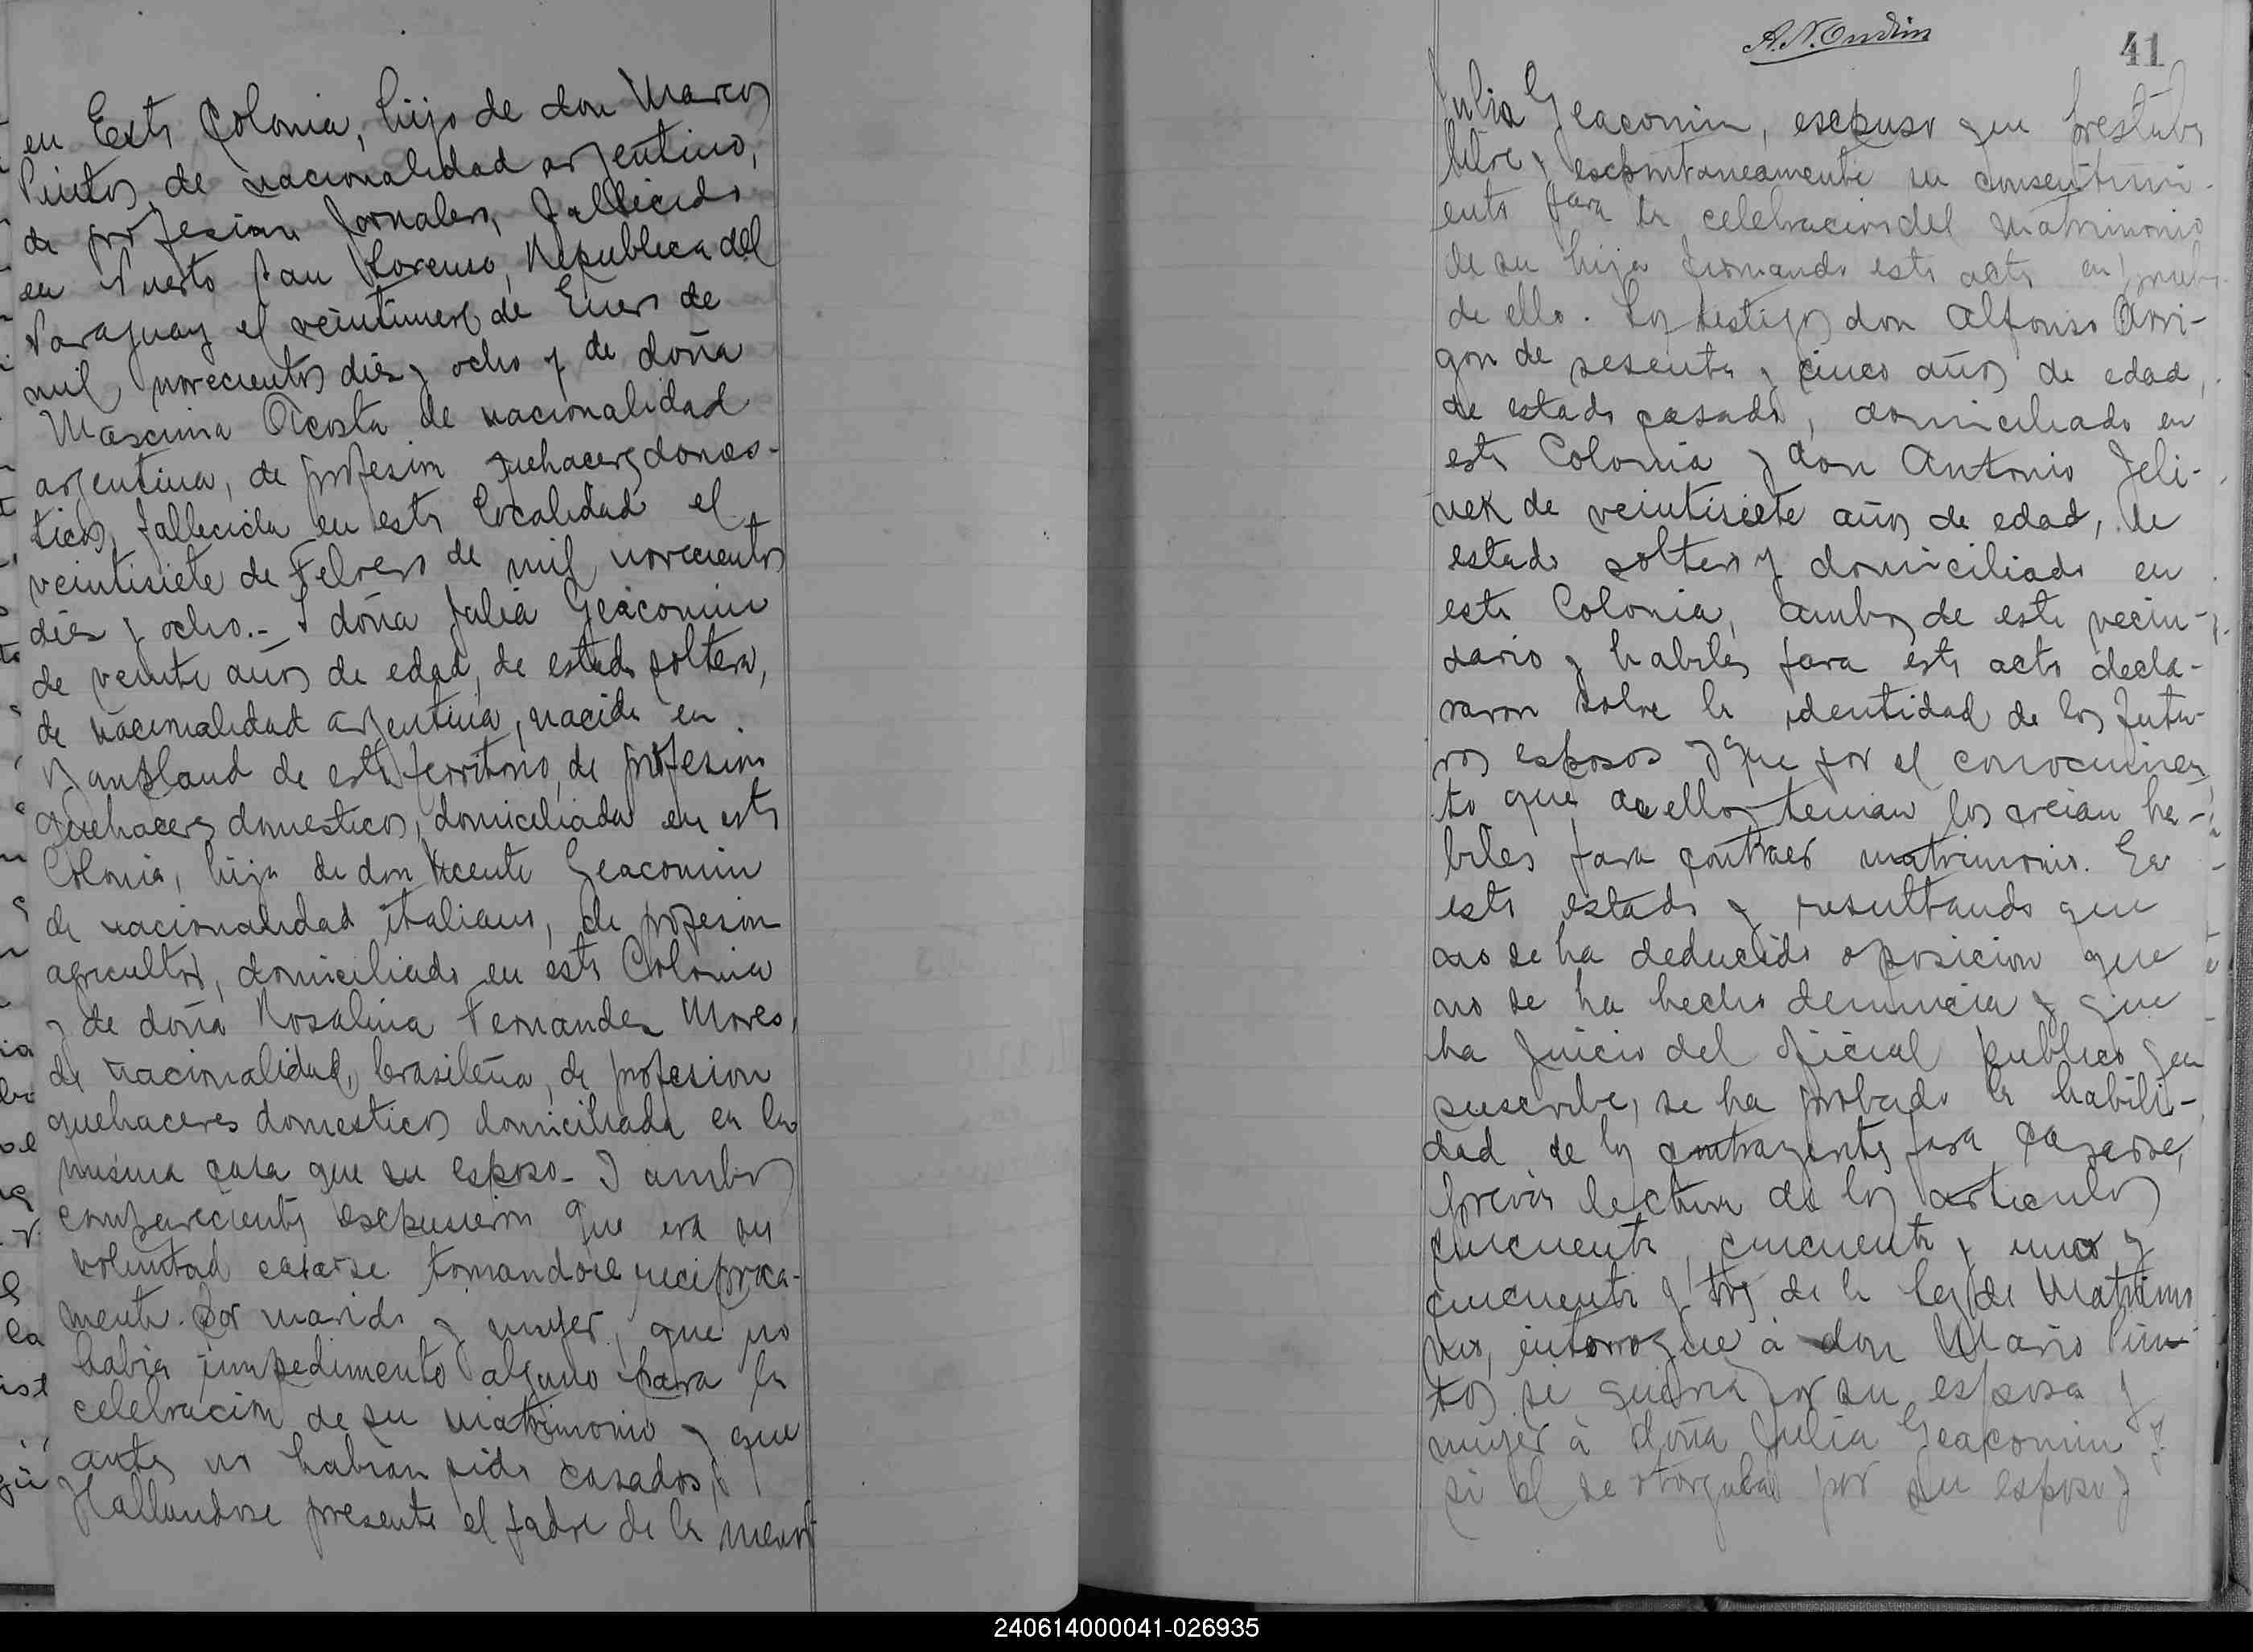 en Esta Colonia, hijo de don Marcos
Pintos, de nacionalidad argentino,
de profesion Jornalero, fallecido
en Puerto San Lorenso, Republica del
Paraguay el veintinueve de Enero de
mil novecientos dies y ocho y de doña
Mascima Acosta de nacionalidad
argentina, de profesion quehaceres domes-
ticos, fallecida en esta localidad el
veintisiete de Febrero de mil novecientos
dies y ocho.- Y doña Julia Geacomin
de veinte años de edad, de estado soltera,
de nacionalidad argentina, nacida en
de este territorio, de profesion
quehaceres domesticos, domiciliada en esta
Colonia, hija de don Vicente Geacomin
de nacionalidad italiano, de profesion
agricultor, domiciliado en esta Colonia
y de doña Rosalina Fernandez
de nacionalidad, brasileña, de profesion
quehaceres domesticos domiciliada en la
misma casa que su esposo- I ambos
comparecientes escpusieron que era su
voluntad casarse tomandose reciproca-
mente por marido y mujer, que no
habia impedimento alguno para la
celebracion de su matrimonio y que
antes no habian sido casados,
Hallandose presente el padre de la menor
41
Julia Geacomin, escpuso que prestaba
libre y escpontaneamente su consentimi-
ento para la celebracion del matrimonio
de su hija firmando este acta en prueba
de ello. Los testigos don Alfonso Arri-
gon de sesenta y cinco años de edad,
de estado casado, domiciliado en
esta Colonia y don Antonio Jeli-
nek de veintisiete años de edad, de
estado soltero y domiciliado en
esta Colonia, ambos de este vecin-
dario y habiles para este acto decla-
raron sobre la identidad de los futu-
ros esposos y que por el conocimien
to que de ellos tenian los creian ha-
biles para contraer matrimonio. En
este estado y resultando que
no se ha deducido oposicion que
no se ha hecho denuncia y que
ha juicio del oficial publico que
suscribe, se ha probado la habili-
dad de los contrayentes para casarse,
previa lectura de los articulos
cincuenta, cincuenta y uno y
cincuenta y tres de la ley de Matrimo
nio, interrogue á don Mario Pin-
tos si queria por su esposa y
mujer á doña Julia Geacomin y
si el se otorgaba por su esposo y
240614000041-026935